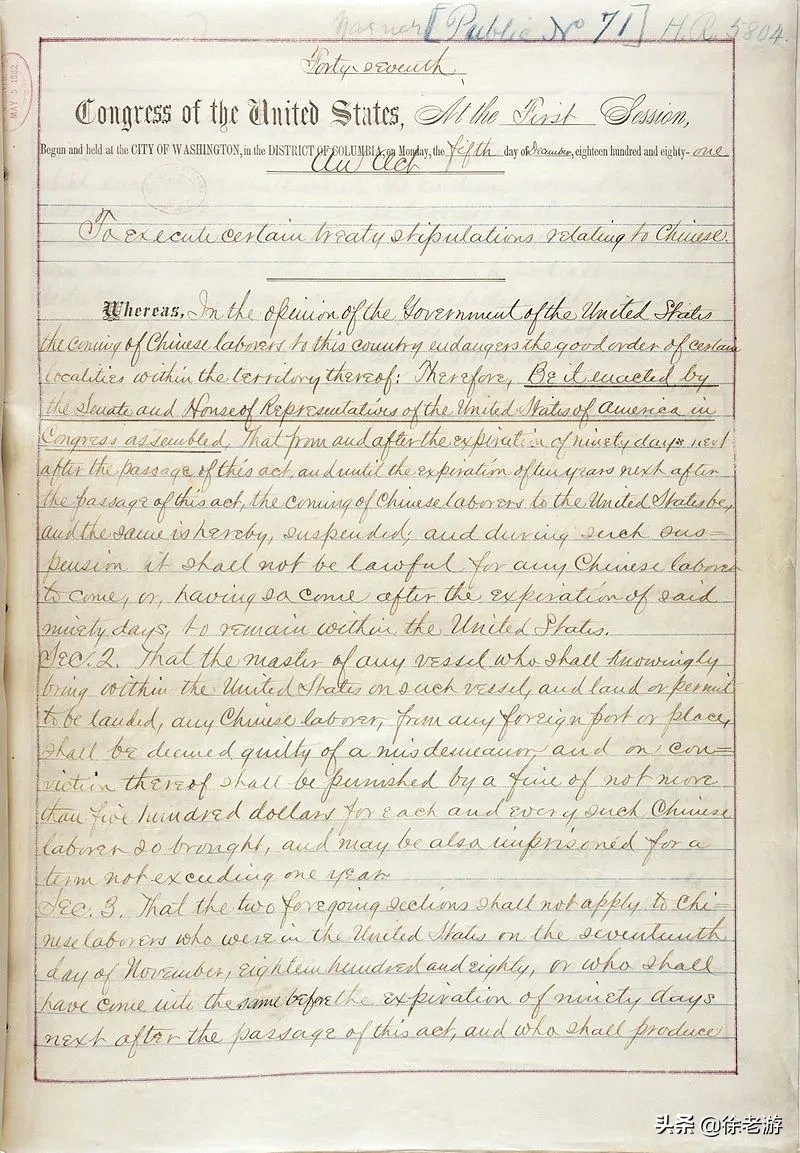 [Public No 71] H.R. 5804.
MAY 5 1882
Forty-seventh
Congress of the United States, At the First Session,
Begun and held at the CITY OF WASHINGTON, in the DISTRICT OF COLUMBIA, on Monday, the fifth day of December, eighteen hundred and eighty-one
An Act
To execute certain treaty stipulations relating to Chinese.
Whereas, In the opinion of the Government of the United States
the coming of Chinese laborers to this country endangers the good order of certain
localities within the territory thereof: Therefore, Be it enacted by
the Senate and House of Representatives of the United States of America in
Congress assembled, That from and after the expiration of ninety days next
after the passage of this act, and until the expiration of ten years next after
the passage of this act, the coming of Chinese laborers to the United States be,
and the same is hereby, suspended; and during such sus=
pension it shall not be lawful for any Chinese laborer
to come, or, having so come after the expiration of said
ninety days, to remain within the United States.
SEC. 2. That the master of any vessel who shall knowingly
bring within the United States on such vessel, and land or permit
to be landed, any Chinese laborer, from any foreign port or place,
shall be deemed guilty of a misdemeanor and on con=
viction thereof shall be punished by a fine of not more
than five hundred dollars for each and every such Chinese
laborer so brought, and may be also imprisoned for a
term not exceeding one year
SEC. 3. That the two foregoing sections shall not apply to Chi=
nese laborers who were in the United States on the seventeenth
day of November, eighteen hundred and eighty, or who shall
have come into the same before the expiration of ninety days
next after the passage of this act, and who shall produce
头条 @徐老游